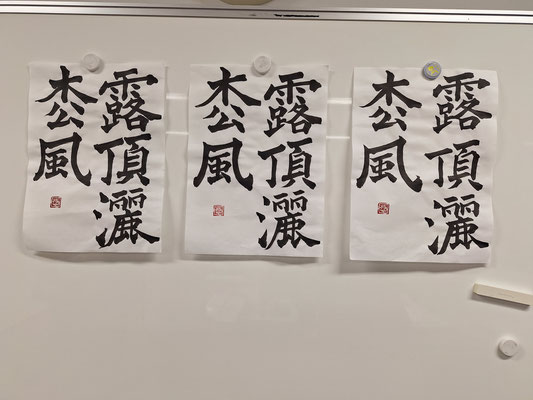 露頂灑
枩風
露頂灑
枩風
露頂灑
枩風